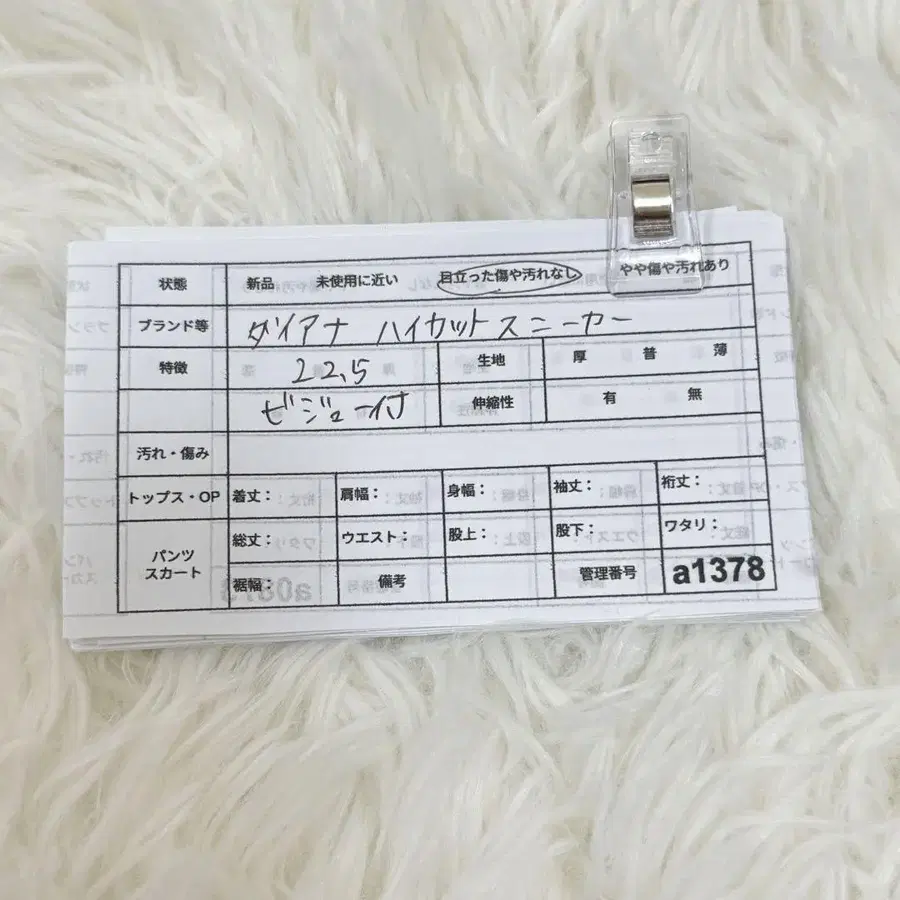 状態 新品 未使用に近い 目立った傷や汚れなし やや傷や汚れあり
ブランド等 ダイアナ ハイカットスニーカー
特徴 22,5 生地 厚 普 薄
ビジュー付 伸縮性 有 無
汚れ・傷み
トップス・OP 着丈： 肩幅： 身幅： 袖丈： 裄丈：
パンツ スカート 総丈： ウエスト： 股上： 股下： ワタリ：
裾幅： 備考 管理番号 a1378